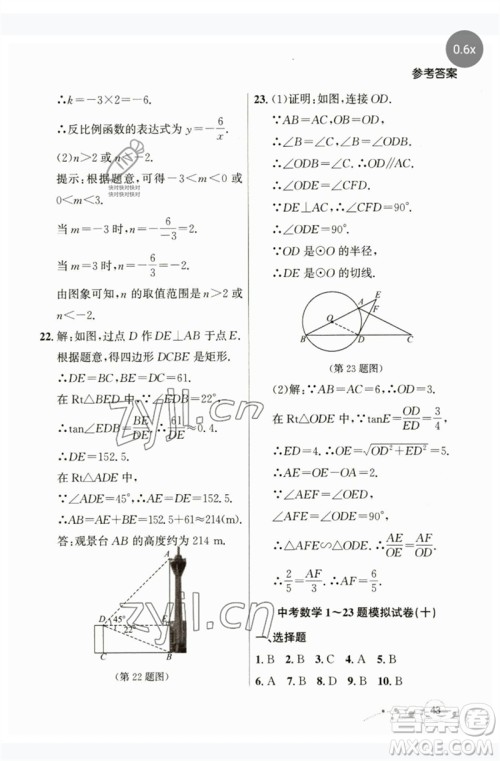 0.6x
参考答案
∴k=-3×2=-6.
∴反比例函数的表达式为 y=-6/x.
(2)n>2 或 n<-2.
提示:根据题意,得-3<m<0 或
0<m<3.
当 m=-3 时,-6/-3=2.
当 m=3 时,-6/3=-2.
由图象可知,n 的取值范围是
n>2 或 n<-2.
22. 解:如图,过点 D 作 DE⊥AB 于点 E.
根据题意,得四边形 DCBE 是矩形.
∴DE=BC,BE=DC=61.
在 Rt△BED 中,∠EDB=22°,
∴tan∠EDB=BE/DE=61/DE≈0.4.
∴DE=152.5.
在 Rt△ADE 中,
∵∠ADE=45°,∴AE=DE=152.5.
∴AB=AE+BE=152.5+61≈214(m).
答:观景台 AB 的高度约为 214 m.
A
D
45°
22°
E
C
B
(第 22 题图)
23. (1)证明:如图,连接 OD.
∵AB=AC,OB=OD,
∴∠B=∠C,∠B=∠ODB.
∴∠C=∠ODB.∴OD∥AC.
∴∠ODE=∠CFD.
∵DE⊥AC,∴∠CFD=90°.
∴∠ODE=90°.
∵OD 是⊙O 的半径,
∴DE 是⊙O 的切线.
E
A
F
O
B
D
C
(第 23 题图)
(2)解:∵AB=AC=6,
∴OA=OD=3.
在 Rt△ODE 中,∵tanE=OD/ED=3/4,
∴ED=4.∴OE=√(OD²+ED²)=5.
∴AE=OE-OA=2.
∵∠AFE=∠ODE=90°,
∴△AFE∽△ODE.∴AE/OE=AF/OD.
∴2/5=AF/3.∴AF=6/5.
中考数学 1~23 题模拟试卷(十)
一、选择题
1. B 2. B 3. B 4. A 5. B
6. A 7. B 8. D 9. A 10. B
43
zyjl.cn
zyjl.cn
答案圈
MXQE.COM